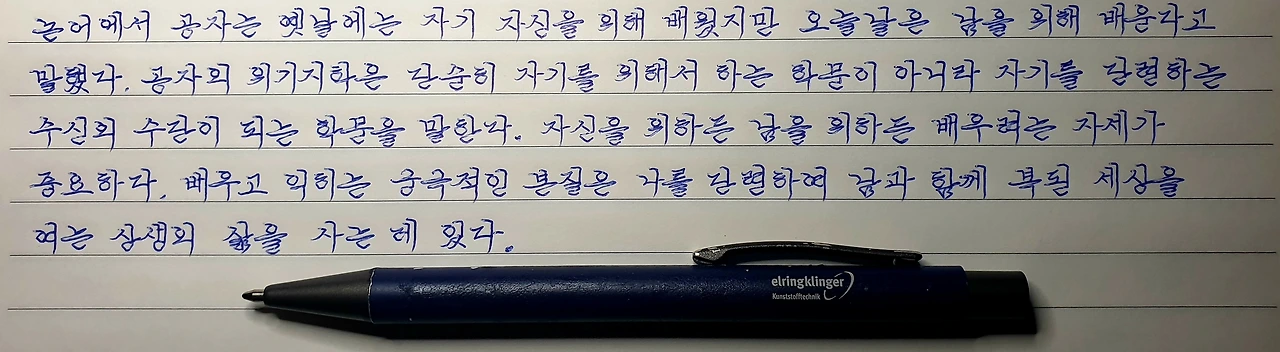 논어에서 공자는 옛날에는 자기 자신을 위해 배웠지만 오늘날은 남을 위해 배운다고
말했다. 공자의 위기지학은 단순히 자기를 위해서 하는 학문이 아니라 자기를 단련하는
수신의 수단이 되는 학문을 말한다. 자신을 위하든 남을 위하든 배우려는 자세가
중요하다. 배우고 익히는 궁극적인 본질은 나를 단련하여 남과 함께 복된 세상을
여는 상생의 삶을 사는 데 있다.
elringklinger
Kunststofftechnik